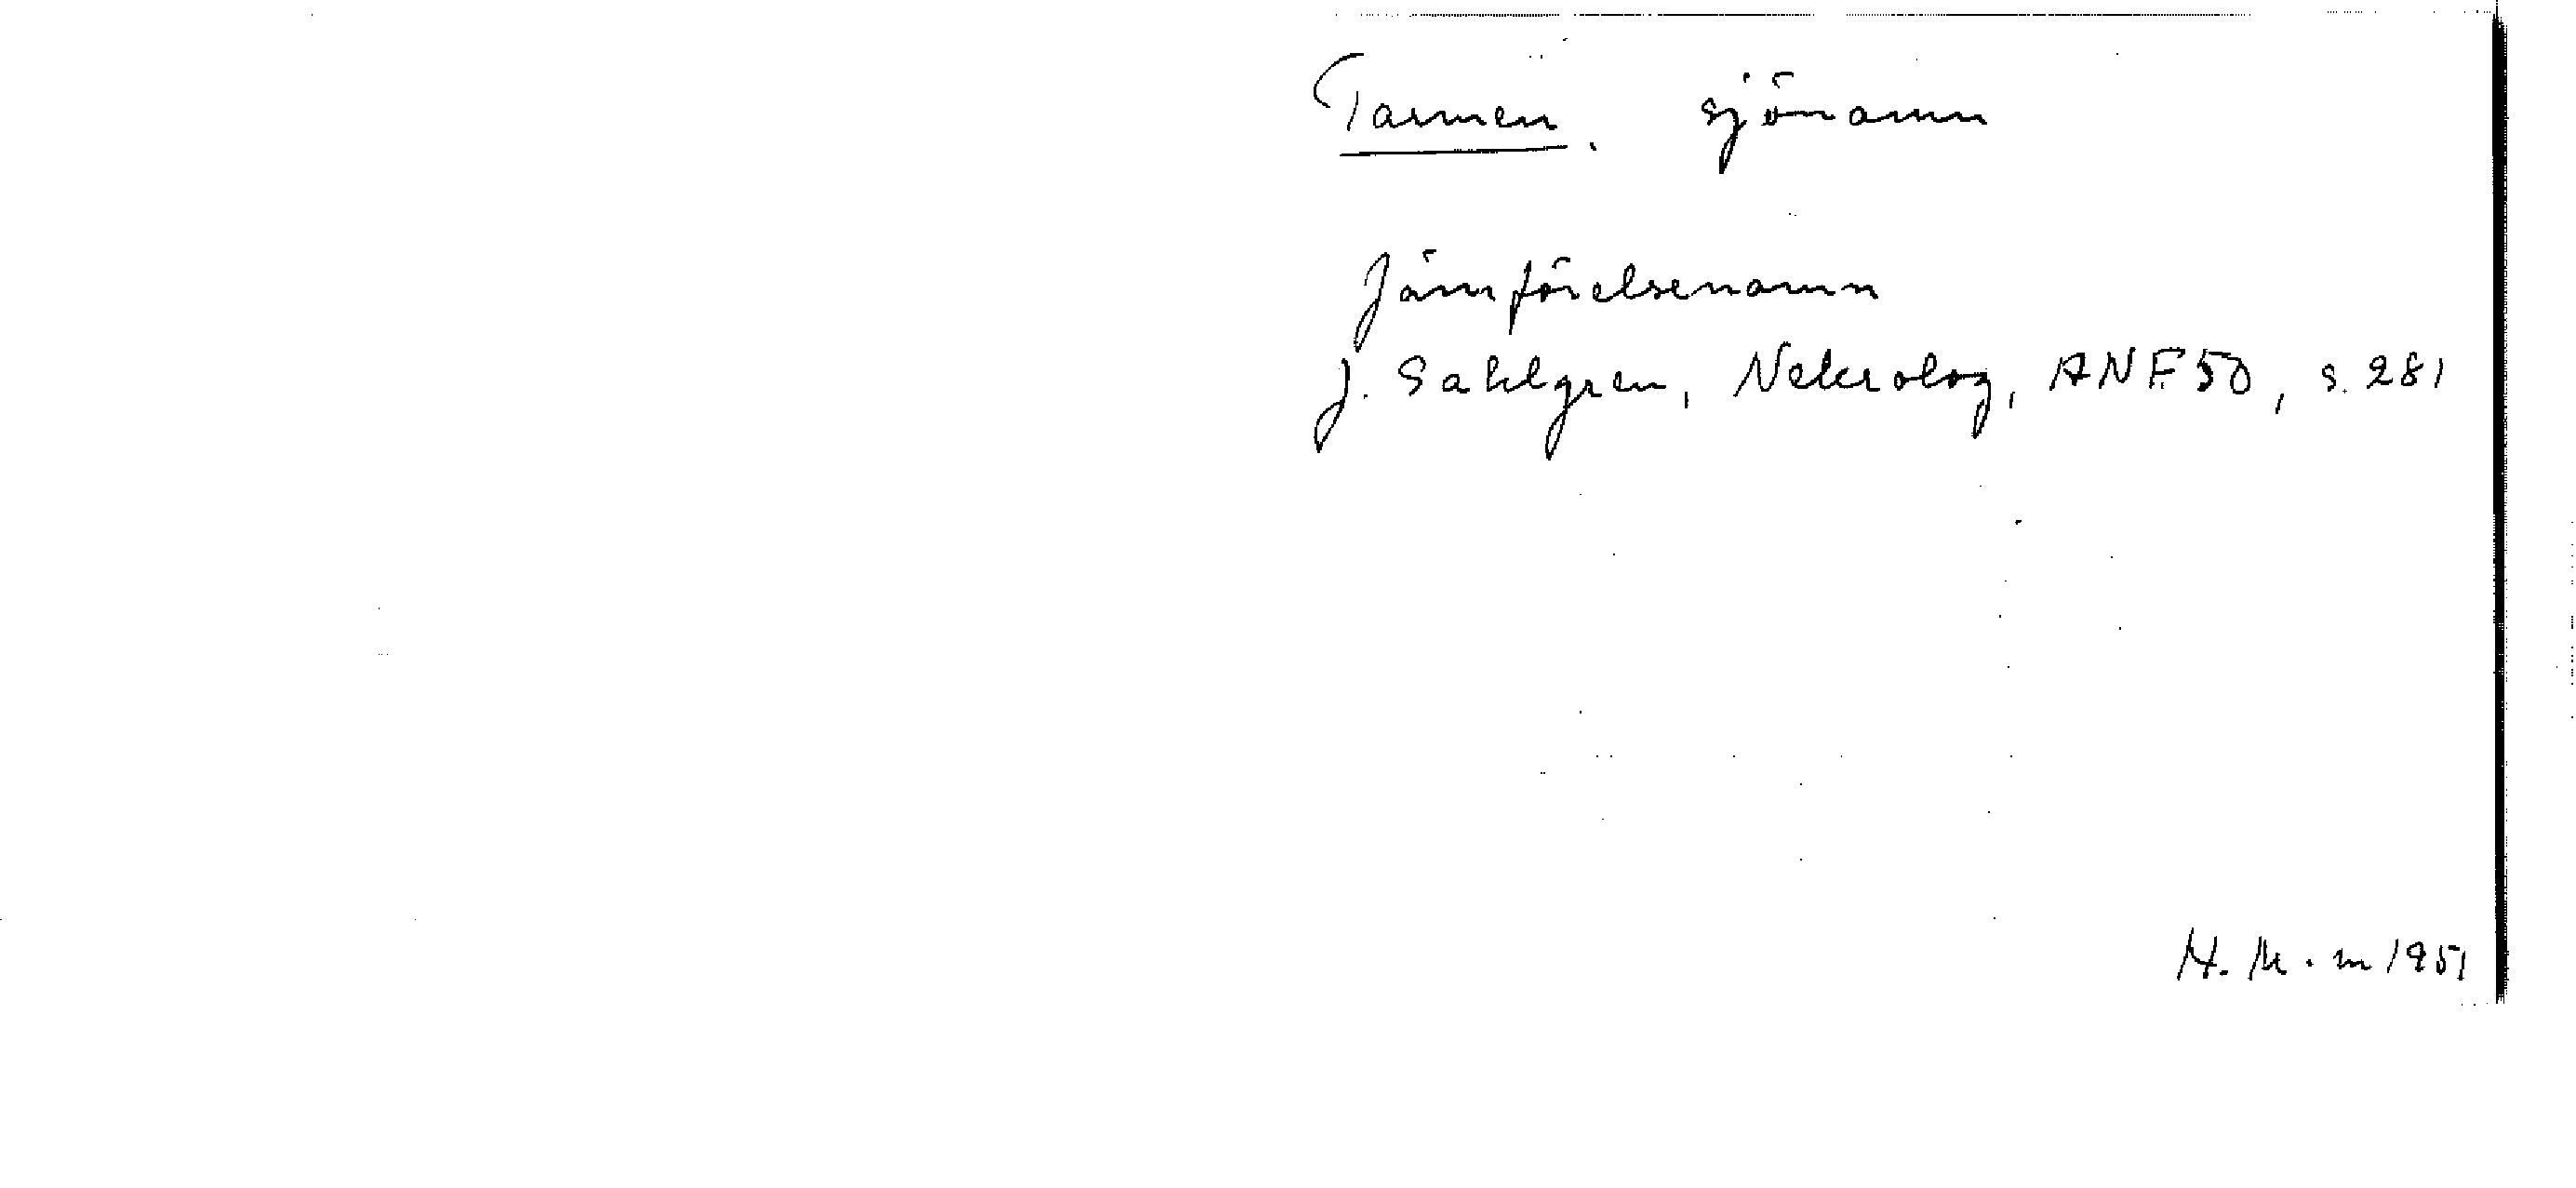 Tarmen. sjönamn
Jämförelsenamn
J. Sahlgren, Nekrolog, ANF 50, s. 281
H. M.m 1951